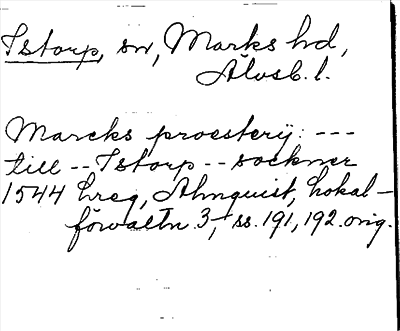 Istorp, sn, Marks hd,
Älvsb. l.
Marcks proesterij: ---
till -- Istorp -- sockner
1544 hreg, Almquist, Lokal-
förvaltn. 3, ss. 191, 192. orig.